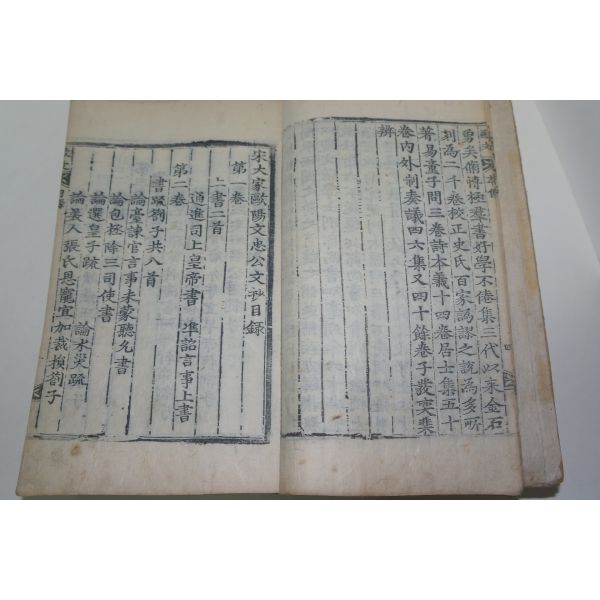 勇矣脩博極羣書好學不倦集三代以來金石
刻為二千卷校正史氏百家譌謬之說為多所
著易童子問三卷詩本義十四卷居士集五十
卷內外制奏議四六集又四十餘卷子發奕棐
辨
宋大家歐陽文忠公文抄目錄
第一卷
上書二首
通進司上皇帝書 準詔言事上書
第二卷
書疏劄子共八首
論臺諫官言事未蒙聽允書
論包拯除三司使書
論選皇子疏 論水災疏
論美人張氏恩寵宜加裁損劄子